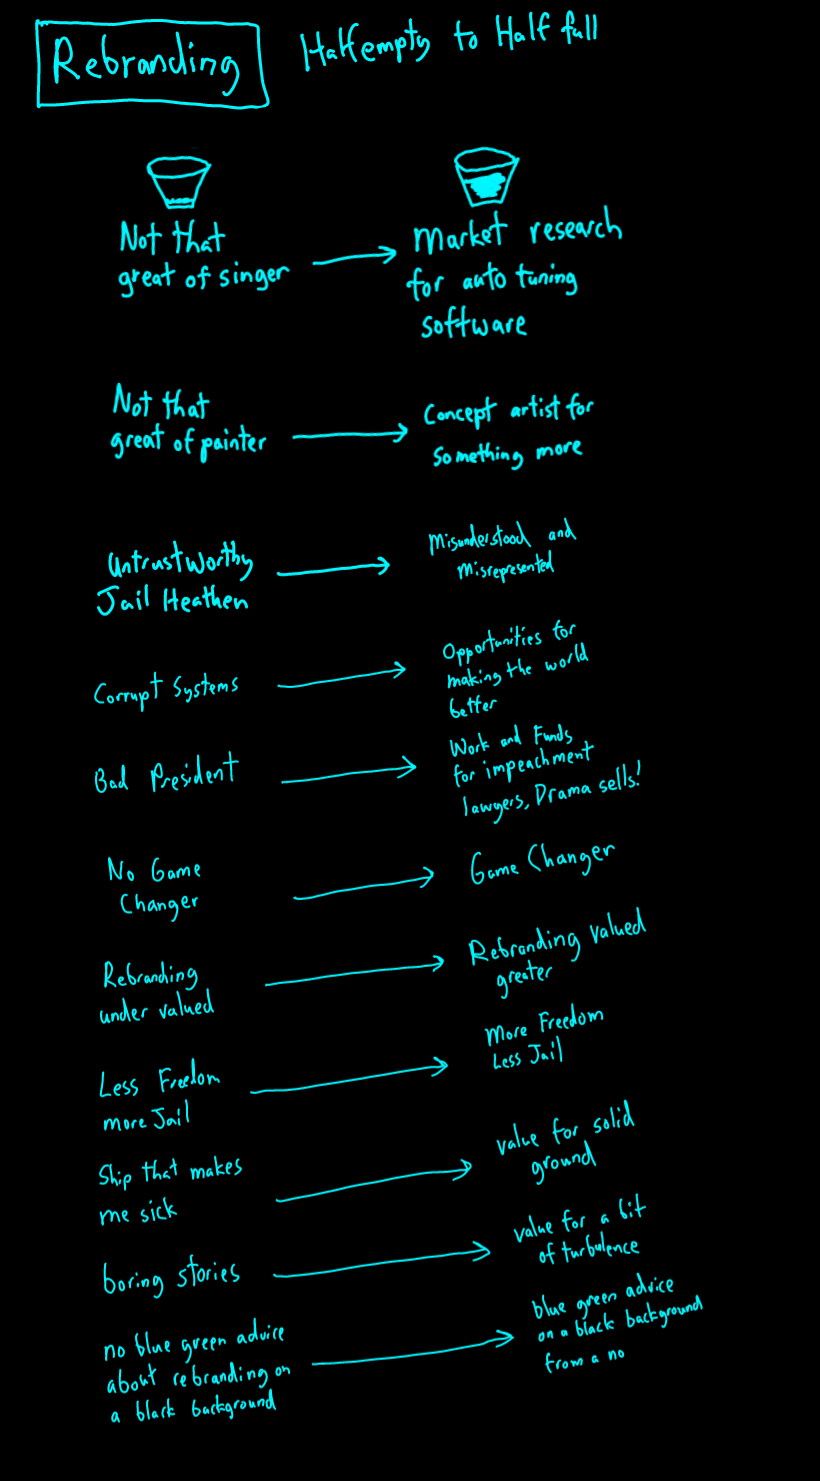 Rebranding
Half empty to Half full
Not that
great of singer
Market research
for auto tuning
software
Not that
great of painter
Concept artist for
something more
Untrustworthy
Jail Heathen
Misunderstood and
Misrepresented
Corrupt Systems
Opportunities for
making the world
better
Bad President
Work and Funds
for impeachment
lawyers, Drama sells!
No Game
Changer
Game Changer
Rebranding
under valued
Rebranding valued
greater
Less Freedom
more Jail
More Freedom
Less Jail
Ship that makes
me sick
value for solid
ground
boring stories
value for a bit
of turbulence
no blue green advice
about rebranding on
a black background
blue green advice
on a black background
from a no